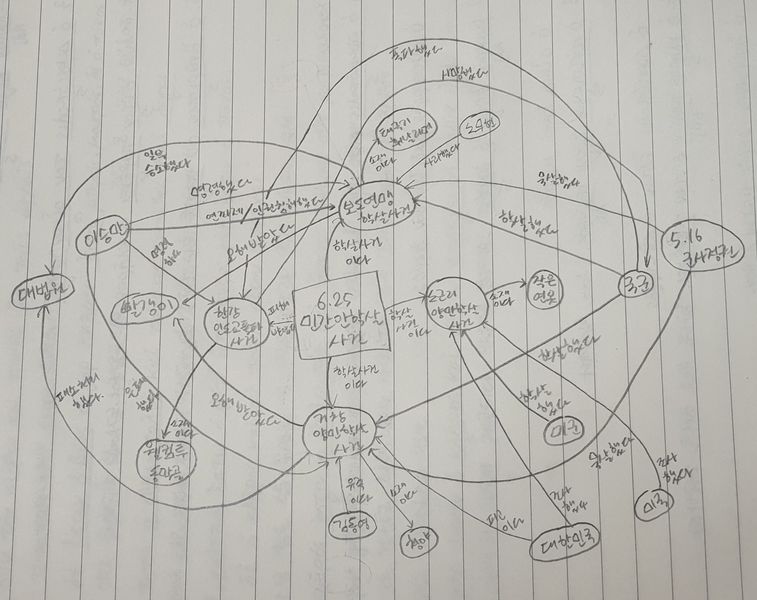 폭파했다
사망했다
태극기
휘날리며
노무현
소재
이다
사과했다
일부
승소했다
명령했다
묵살했다
보도연맹
학살사건
연좌제/인권침해했다
이승만
5.16
군사정권
학살했다
명령
했다
오해받았다
학살사건
이다
대법원
국군
빨갱이
한강
인도교폭파
사건
6.25
민간인학살
사건
학살
사건
이다
노근리
양민학살
사건
소재
이다
작은
연못
학살사건
이다
학살했다
패소처리
했다
은폐
했다
오해받았다
거창
양민학살
사건
학살
했다
미군
묵살했다
조사
했다
소재
이다
웰컴투
동막골
유족
이다
소재
이다
김동영
청야
피고
이다
조사
했다
대한민국
미국